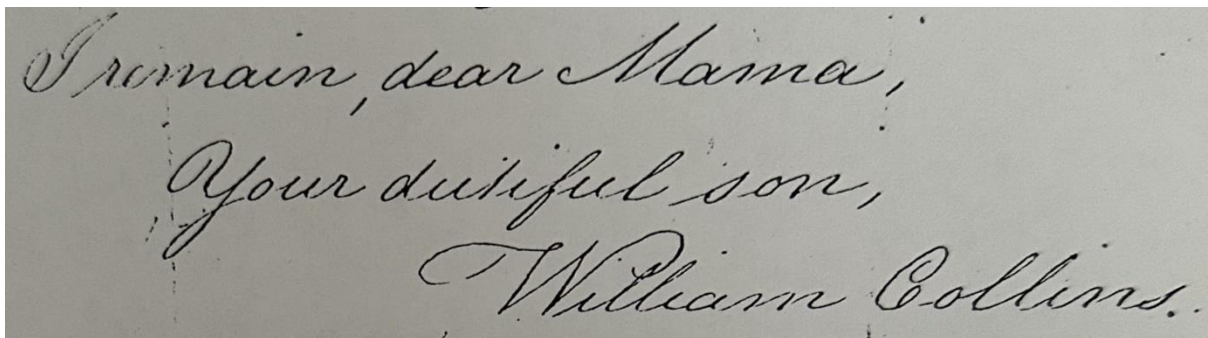 I remain, dear Mama,
Your dutiful son,
William Collins.